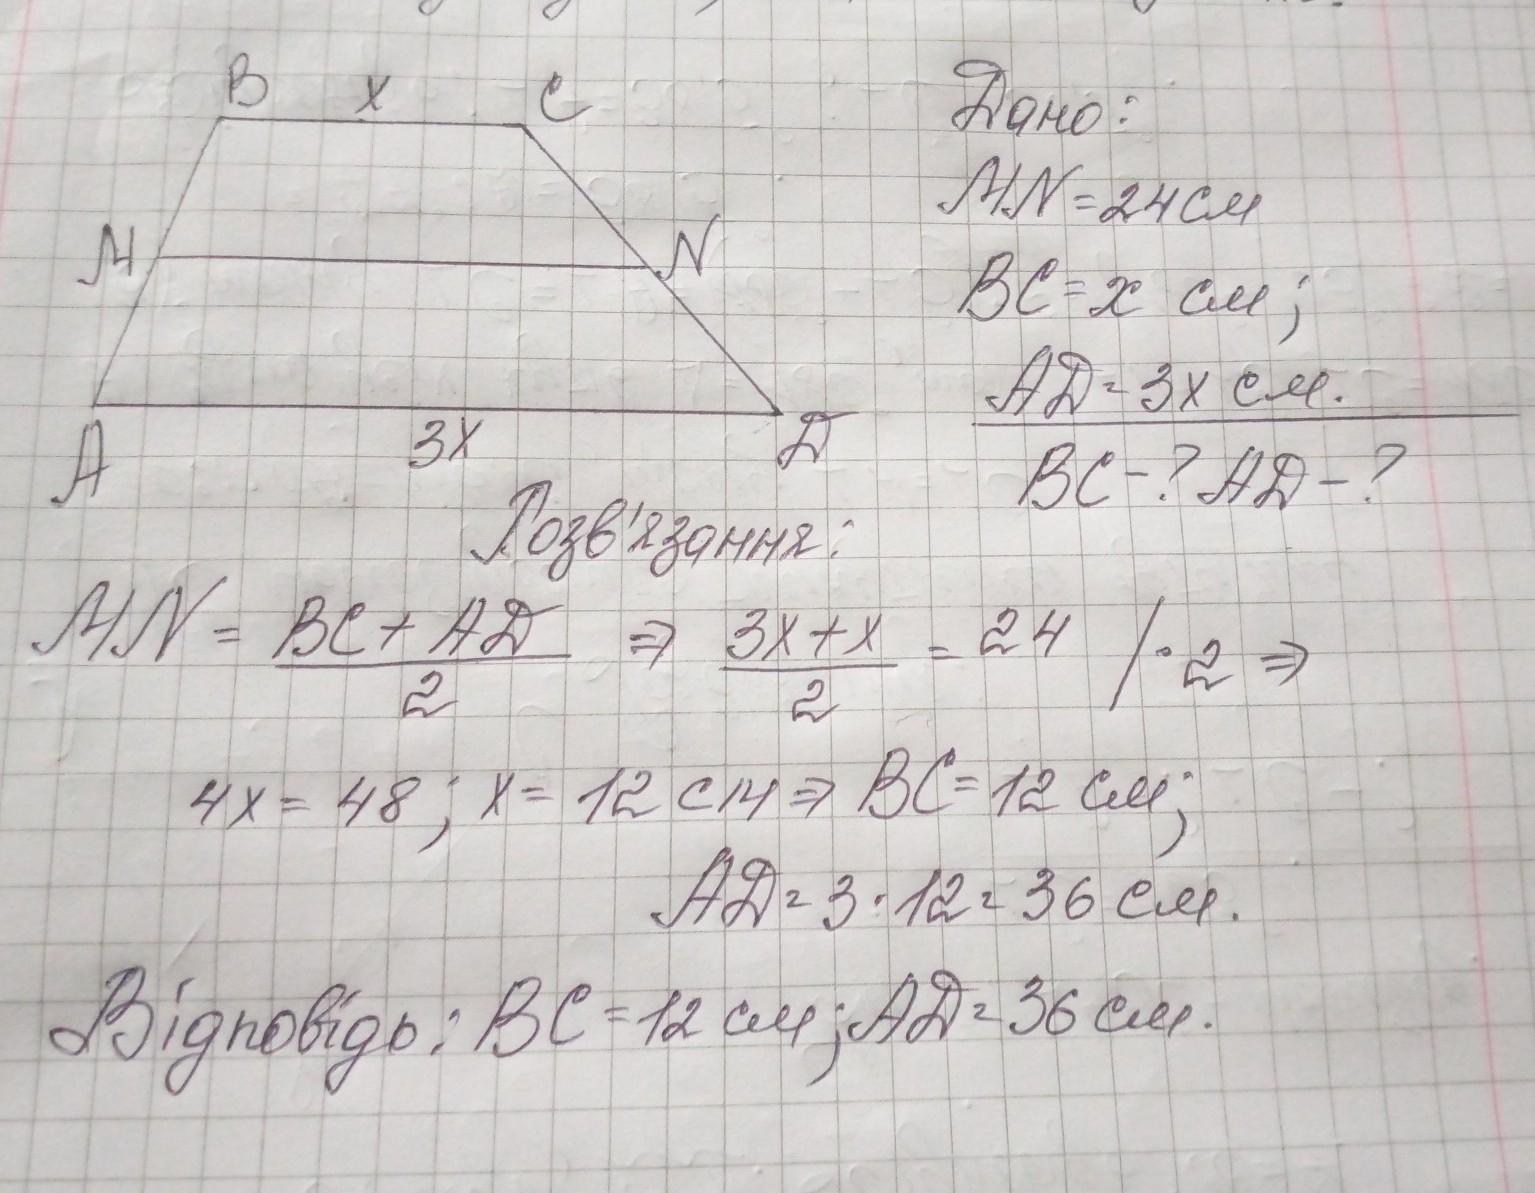 B x C
Дано:
MN = 24 см
M N
BC = x см;
AD = 3x см.
A 3x D
BC - ? AD - ?
Розв'язання:
MN = (BC + AD)/2 ⇒ (3x + x)/2 = 24 / · 2 ⇒
4x = 48; x = 12 см ⇒ BC = 12 см;
AD = 3 · 12 = 36 см.
Відповідь: BC = 12 см; AD = 36 см.